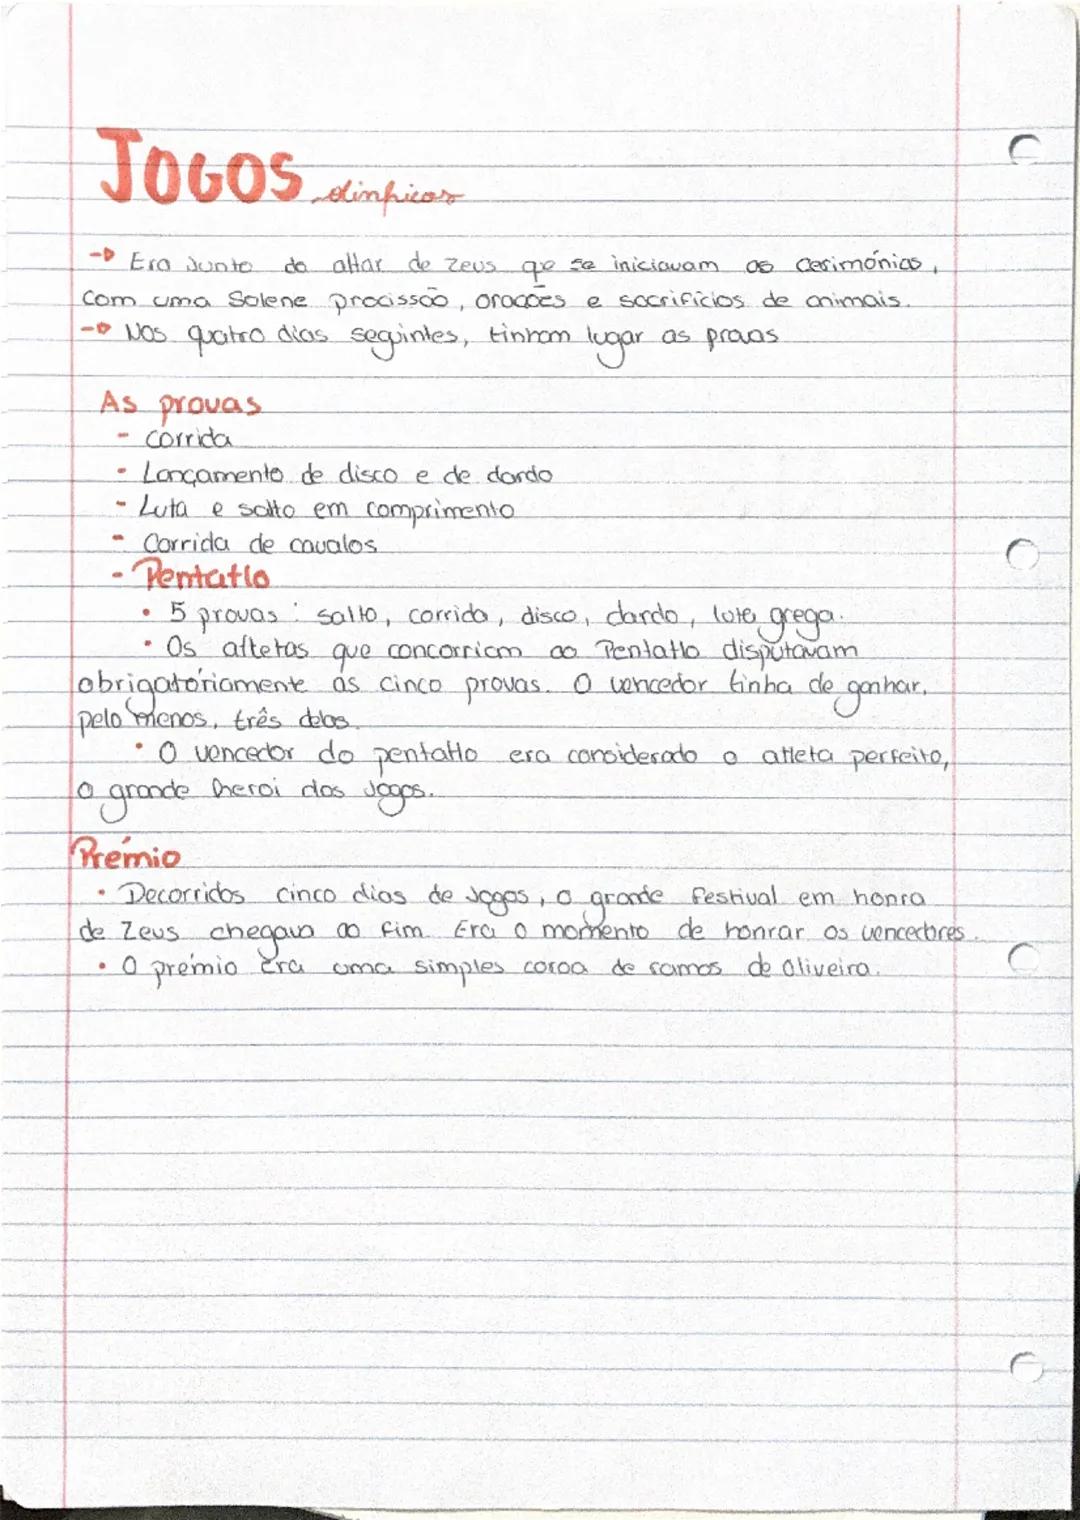 JOGOS olímpicos
→ Era junto do altar de Zeus que se iniciavam as cerimónias,
com uma solene procissão, orações e sacrifícios de animais.
→ Nos quatro dias seguintes, tinham lugar as provas
As provas
- corrida
- Lançamento de disco e de dardo
- Luta e salto em comprimento
- Corrida de cavalos
- Pentatlo
• 5 provas: salto, corrida, disco, dardo, luta grega.
• Os atletas que concorriam ao Pentatlo disputavam
obrigatóriamente as cinco provas. O vencedor tinha de ganhar,
pelo menos, três delas.
• O vencedor do pentatlo era considerado o atleta perfeito,
o grande heroi dos Jogos.
Prémio
• Decorridos cinco dias de Jogos, o grande festival em honra
de Zeus chegava ao fim. Era o momento de honrar os vencedores.
• O prémio era uma simples coroa de ramos de Oliveira.